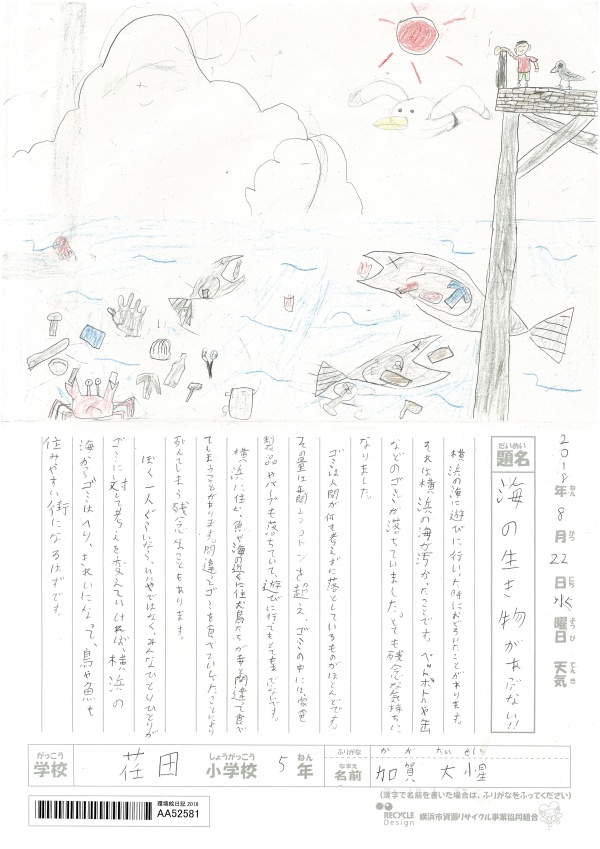 2018年8月22日水曜日 天気
ねん がつ にち ようび てんき
だいめい
題名
海の生き物があぶない!!
横浜の海に遊びに行った時におどろいたことがあります。
それは横浜の海が汚なかったことです。ペットボトルや缶
などのゴミが落ちていました。とても残念な気持ちに
なりました。
ゴミは人間が何も考えずに落としているものがほとんどです。
その量は年間200トンを超え、ゴミの中には、家電
製品やバイクも落ちていて、遊びに行てもとてもあぶないです。
横浜に住む、魚や海の近くに住む鳥たちが毒と間違って食べ
てしまうことがあります。間違ってゴミを食べてしまったことにより
死んでしまう残念なこともあります。
ぼく一人ぐらいなら、いいやではなく、みんなひとりひとりが
ゴミに対して考えを変えていければ、横浜の
海からゴミはへり、きれいになって、鳥や魚も
住みやすい街になるはずです。
がっこう
学校
荏田
しょうがっこう
小学校
5
ねん
年
ふりがな
かが たいせい
なまえ
名前
加賀 大惺
(漢字で名前を書いた場合は、ふりがなをふってください)
環境絵日記2018
AA52581
RECYCLE Design
横浜市資源リサイクル事業協同組合